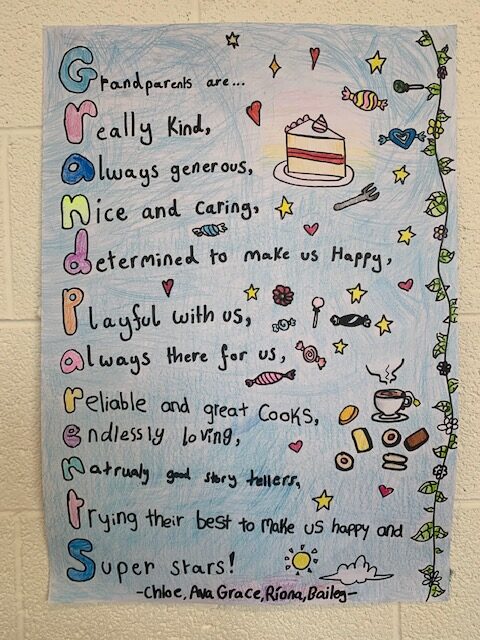 Grandparents are...
really Kind,
always generous,
Nice and caring,
determined to make us Happy,
Playful with us,
always there for us,
reliable and great Cooks,
endlessly loving,
natrualy good story tellers,
trying their best to make us happy and
Super stars!
-Chloe, Ava Grace, Ríona, Bailey-